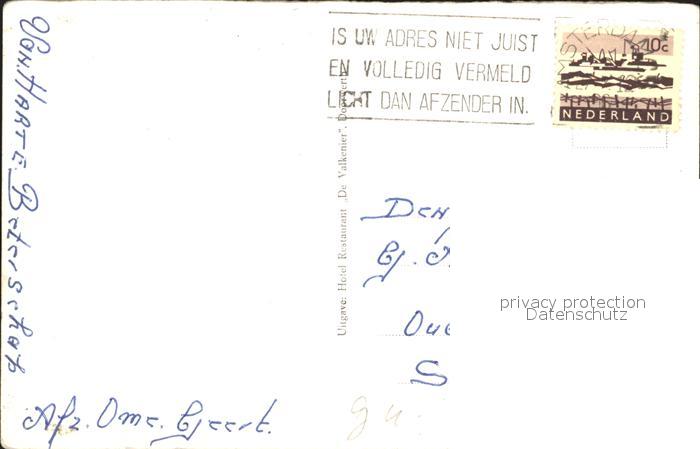 Van. HARTE Beterschap
IS UW ADRES NIET JUIST
EN VOLLEDIG VERMELD
LICHT DAN AFZENDER IN.
AMSTERDA
10c
NEDERLAND
Uitgave: Hotel Restaurant „De Valkenier”.
Den
G.
Oude
S
privacy protection
Datenschutz
Afz. Oma. Geert.